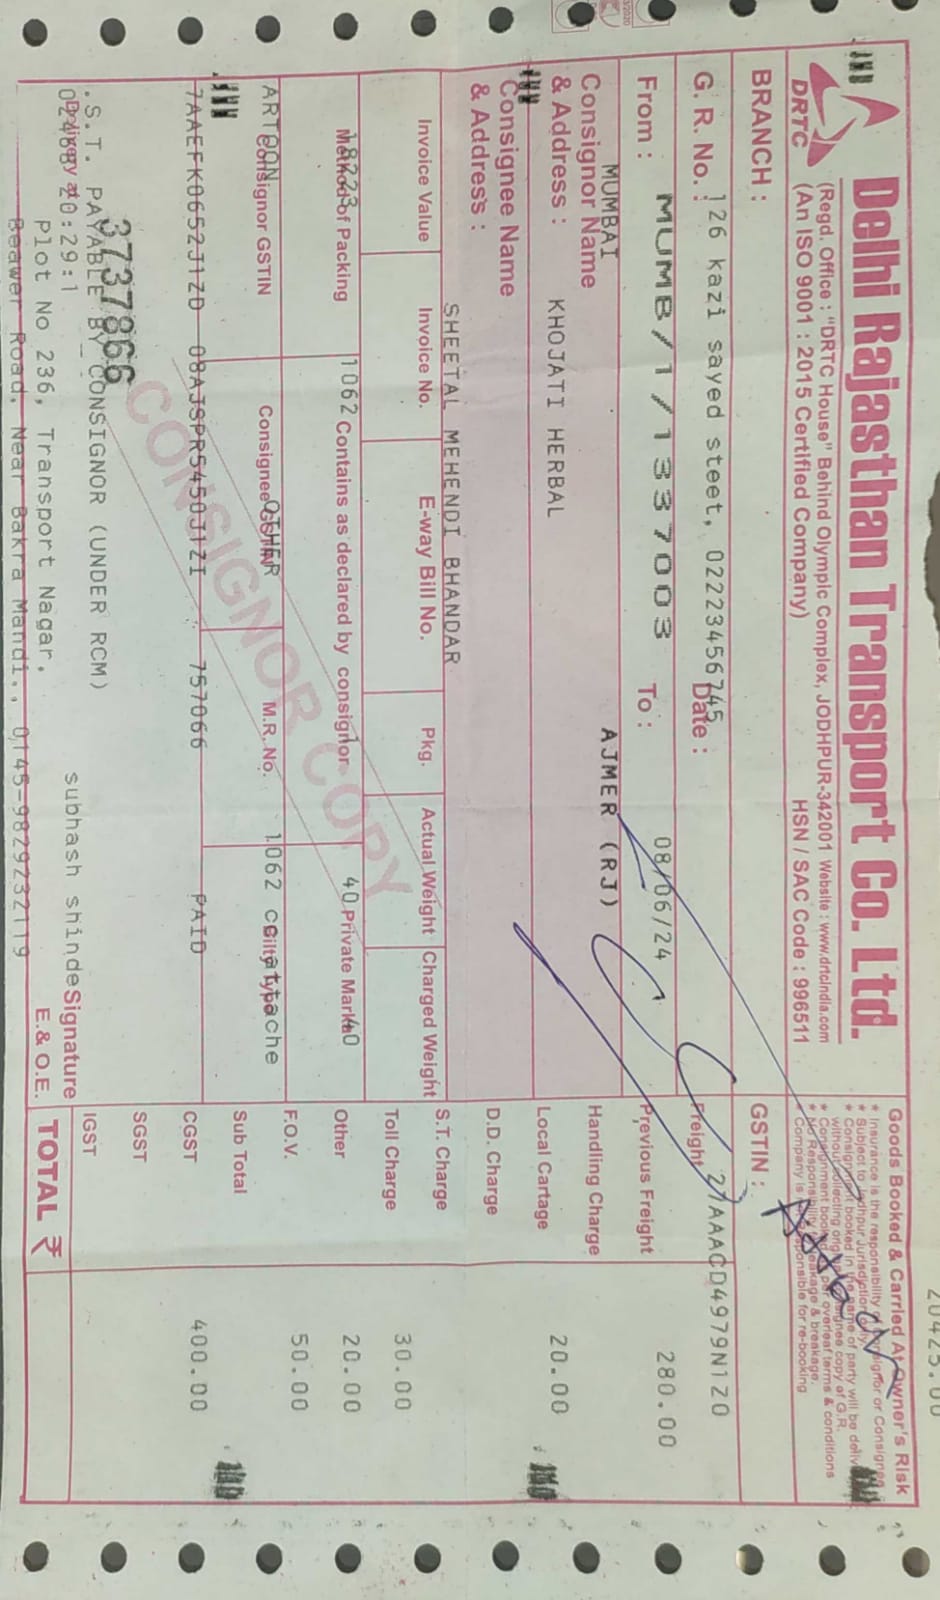 20425.00
Delhi Rajasthan Transport Co. Ltd.
DRTC
(Regd. Office : "DRTC House" Behind Olympic Complex, JODHPUR-342001 Website : www.drtcindia.com
(An ISO 9001 : 2015 Certified Company)
HSN / SAC Code : 996511
Goods Booked & Carried At Owner's Risk
* Insurance is the responsibility of Consignor or Consignee
* Subject to Jodhpur Jurisdiction only
* Consignment booked in the name of party will be
without collecting original consignee copy of G.R.
* Consignment booked as per overleaf terms & conditions
* No Responsibility of leakage & breakage.
* Company is not responsible for re-booking
BRANCH :
GSTIN :
126 kazi sayed steet, 02223456745
27AAACD4979N1Z0
G. R. No. :
Date :
Freight
MUMB/1/1337003
08/06/24
280.00
From :
To :
Previous Freight
MUMBAI
AJMER (RJ)
Consignor Name
& Address :
Handling Charge
KHOJATI HERBAL
20.00
Local Cartage
Consignee Name
& Address :
D.D. Charge
SHEETAL MEHENDI BHANDAR
S.T. Charge
Invoice Value
Invoice No.
E-way Bill No.
Pkg.
Actual Weight
Charged Weight
30.00
Toll Charge
18223
1062
1
40
40
20.00
Method of Packing
Contains as declared by consignor
Private Marka
Other
50.00
F.O.V.
ARTOON
OTHER
1062 c attache
Consignor GSTIN
Consignee GSTIN
M.R. No.
Bilty Type
Sub Total
7AAEFK0652J1ZD
08AJSPR5450J1ZI
757066
PAID
400.00
CGST
CONSIGNOR COPY
SGST
3737866
.S.T. PAYABLE BY CONSIGNOR (UNDER RCM)
IGST
Delivery at
20:29:1
subhash shinde
Signature
Plot No 236, Transport Nagar,
E.& O.E.
TOTAL ₹
Beawer Road, Near Bakra Mandi., 0145-9829232119